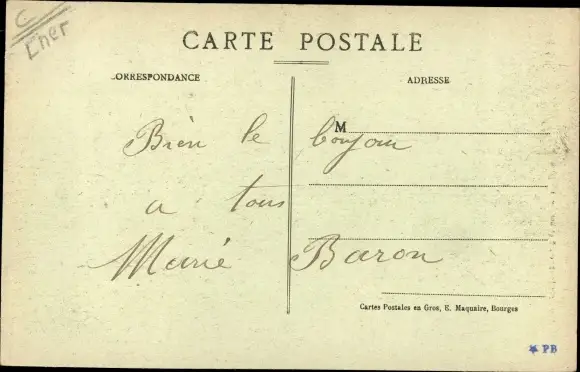 C
Cher
CARTE POSTALE
CORRESPONDANCE
ADRESSE
M
Bien le bonjour
a tous
Marie Baron
Cartes Postales en Gros, E. Maquaire, Bourges
* PB